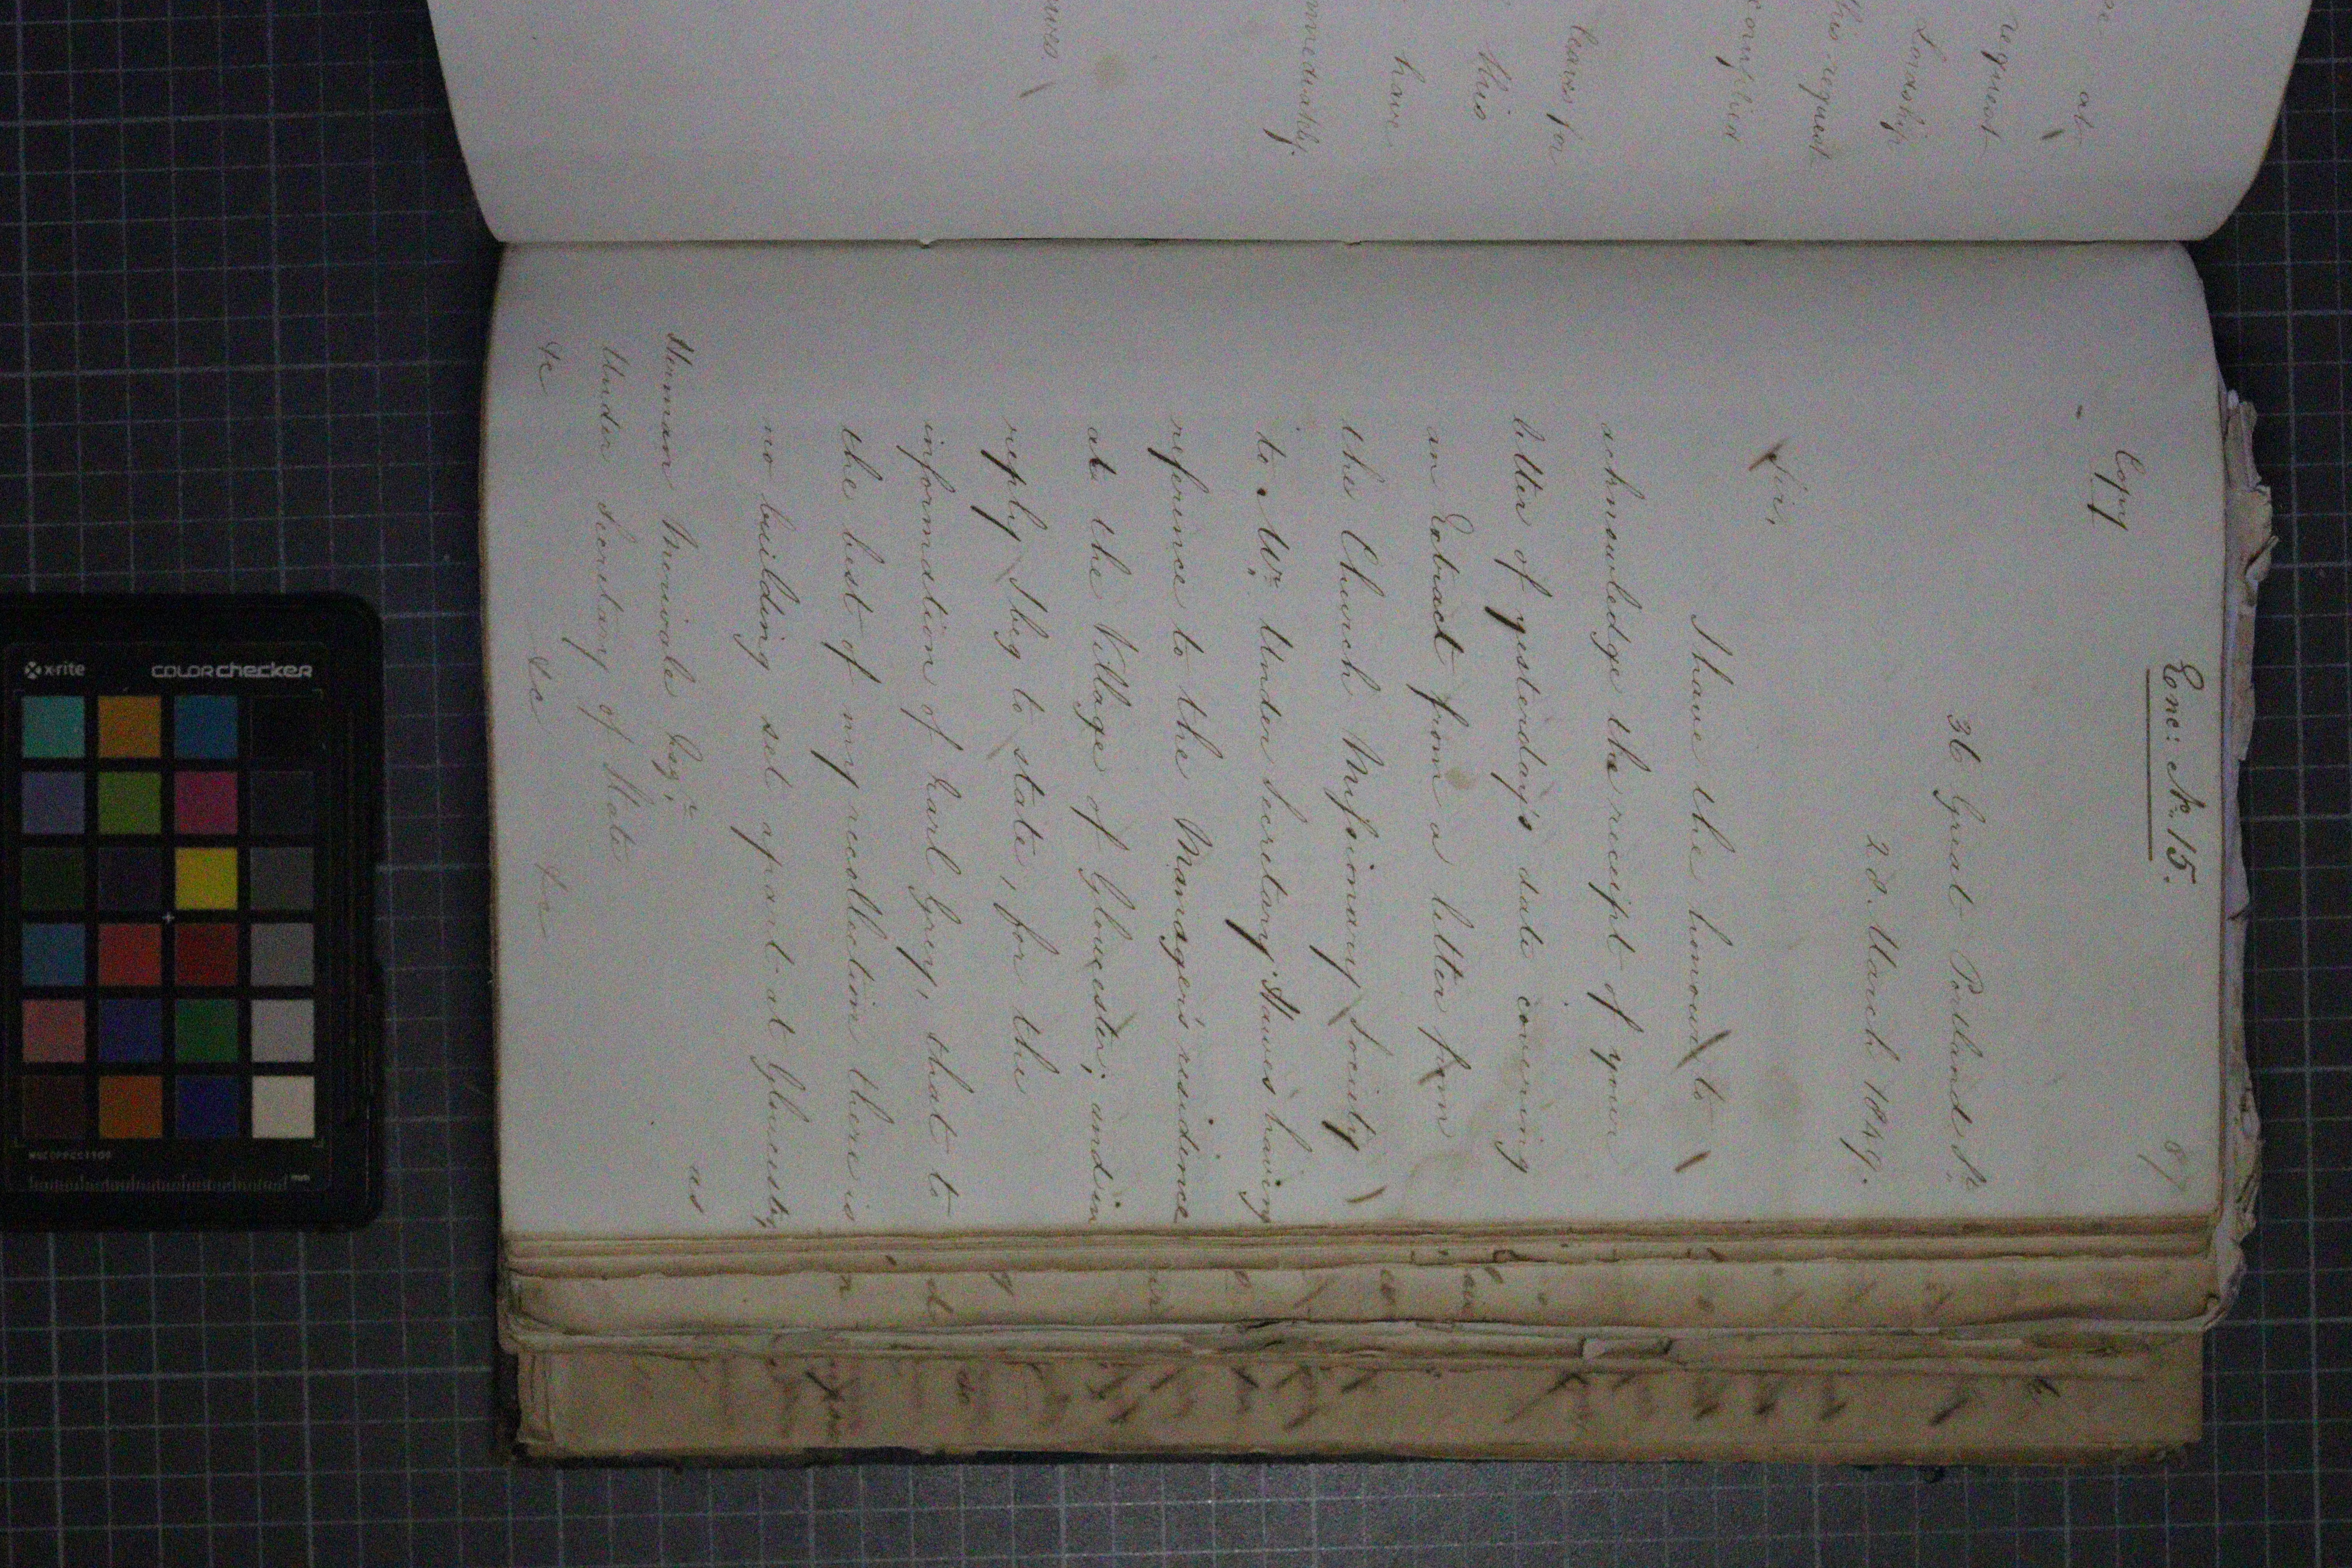 Enc: No. 15.
87
Copy
36 Great Portland St
28. March 1849.
Sir,
I have the honour to
acknowledge the receipt of your
letter of yesterday's date covering
an Extract from a letter from
the Church Missionary Society
to Mr. Under Secretary Hawes having
reference to the Manager's residence
at the Village of Gloucester; and in
reply I beg to state, for the
information of Earl Grey, that to
the best of my recollection there is
no building set apart at Gloucester,
as
Herman Merivale Esqre
Under Secretary of State
&c &c &c
at
request
Lordship
this request
complied
leaves for
this
have
immediately
x-rite
colorchecker
mm